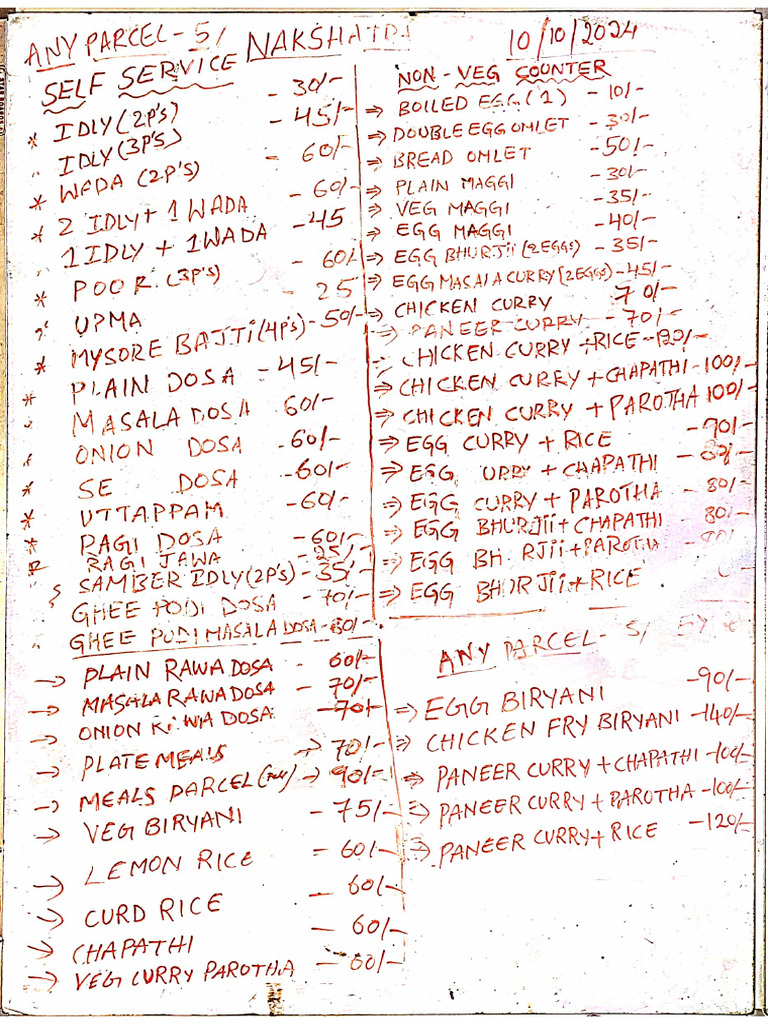 ANY PARCEL - 5/ NAKSHATRA 10/10/2024
SELF SERVICE
* IDLY (2P'S) - 30/-
IDLY (3P'S) - 45/-
* WADA (2P'S) - 60/-
* 2 IDLY + 1 WADA - 60/-
1 IDLY + 1 WADA - 45
* POORI (3P'S) - 60/-
UPMA - 25
* MYSORE BAJJI (4P's) - 50/-
* PLAIN DOSA - 45/-
MASALA DOSA 60/-
ONION DOSA - 60/-
* SE DOSA - 60/-
* UTTAPPAM - 60/-
* RAGI DOSA - 60/-
RAGI JAWA - 25/-
SAMBER IDLY (2P's) - 35/-
GHEE PODI DOSA - 70/-
GHEE PUDI MASALA DOSA - 80/-
→ PLAIN RAWA DOSA - 60/-
→ MASALA RAWA DOSA - 70/-
→ ONION RAWA DOSA - 70/-
→ PLATE MEALS → 70/-
→ MEALS PARCEL → 90/-
→ VEG BIRYANI - 75/-
→ LEMON RICE - 60/-
→ CURD RICE - 60/-
→ CHAPATHI - 60/-
→ VEG CURRY PAROTHA - 60/-
NON - VEG COUNTER
⇒ BOILED EGG (1) - 10/-
⇒ DOUBLE EGG OMLET - 30/-
⇒ BREAD OMLET - 50/-
⇒ PLAIN MAGGI - 30/-
⇒ VEG MAGGI - 35/-
⇒ EGG MAGGI - 40/-
⇒ EGG BHURJii (2 EGGS) - 35/-
⇒ EGG MASALA CURRY (2 EGGS) - 45/-
⇒ CHICKEN CURRY 70/-
⇒ PANEER CURRY - 70/-
⇒ CHICKEN CURRY + RICE - 120/-
⇒ CHICKEN CURRY + CHAPATHI - 100/-
⇒ CHICKEN CURRY + PAROTHA 100/-
⇒ EGG CURRY + RICE - 90/-
⇒ EGG URRY + CHAPATHI - 80/-
⇒ EGG CURRY + PAROTHA - 80/-
⇒ EGG BHURJii + CHAPATHI - 80/-
⇒ EGG BH RJii + PAROTHA
⇒ EGG BHURJii + RICE
ANY PARCEL - 5/
⇒ EGG BIRYANI - 90/-
⇒ CHICKEN FRY BIRYANI - 140/-
⇒ PANEER CURRY + CHAPATHI - 100/-
⇒ PANEER CURRY + PAROTHA - 100/-
⇒ PANEER CURRY + RICE - 120/-